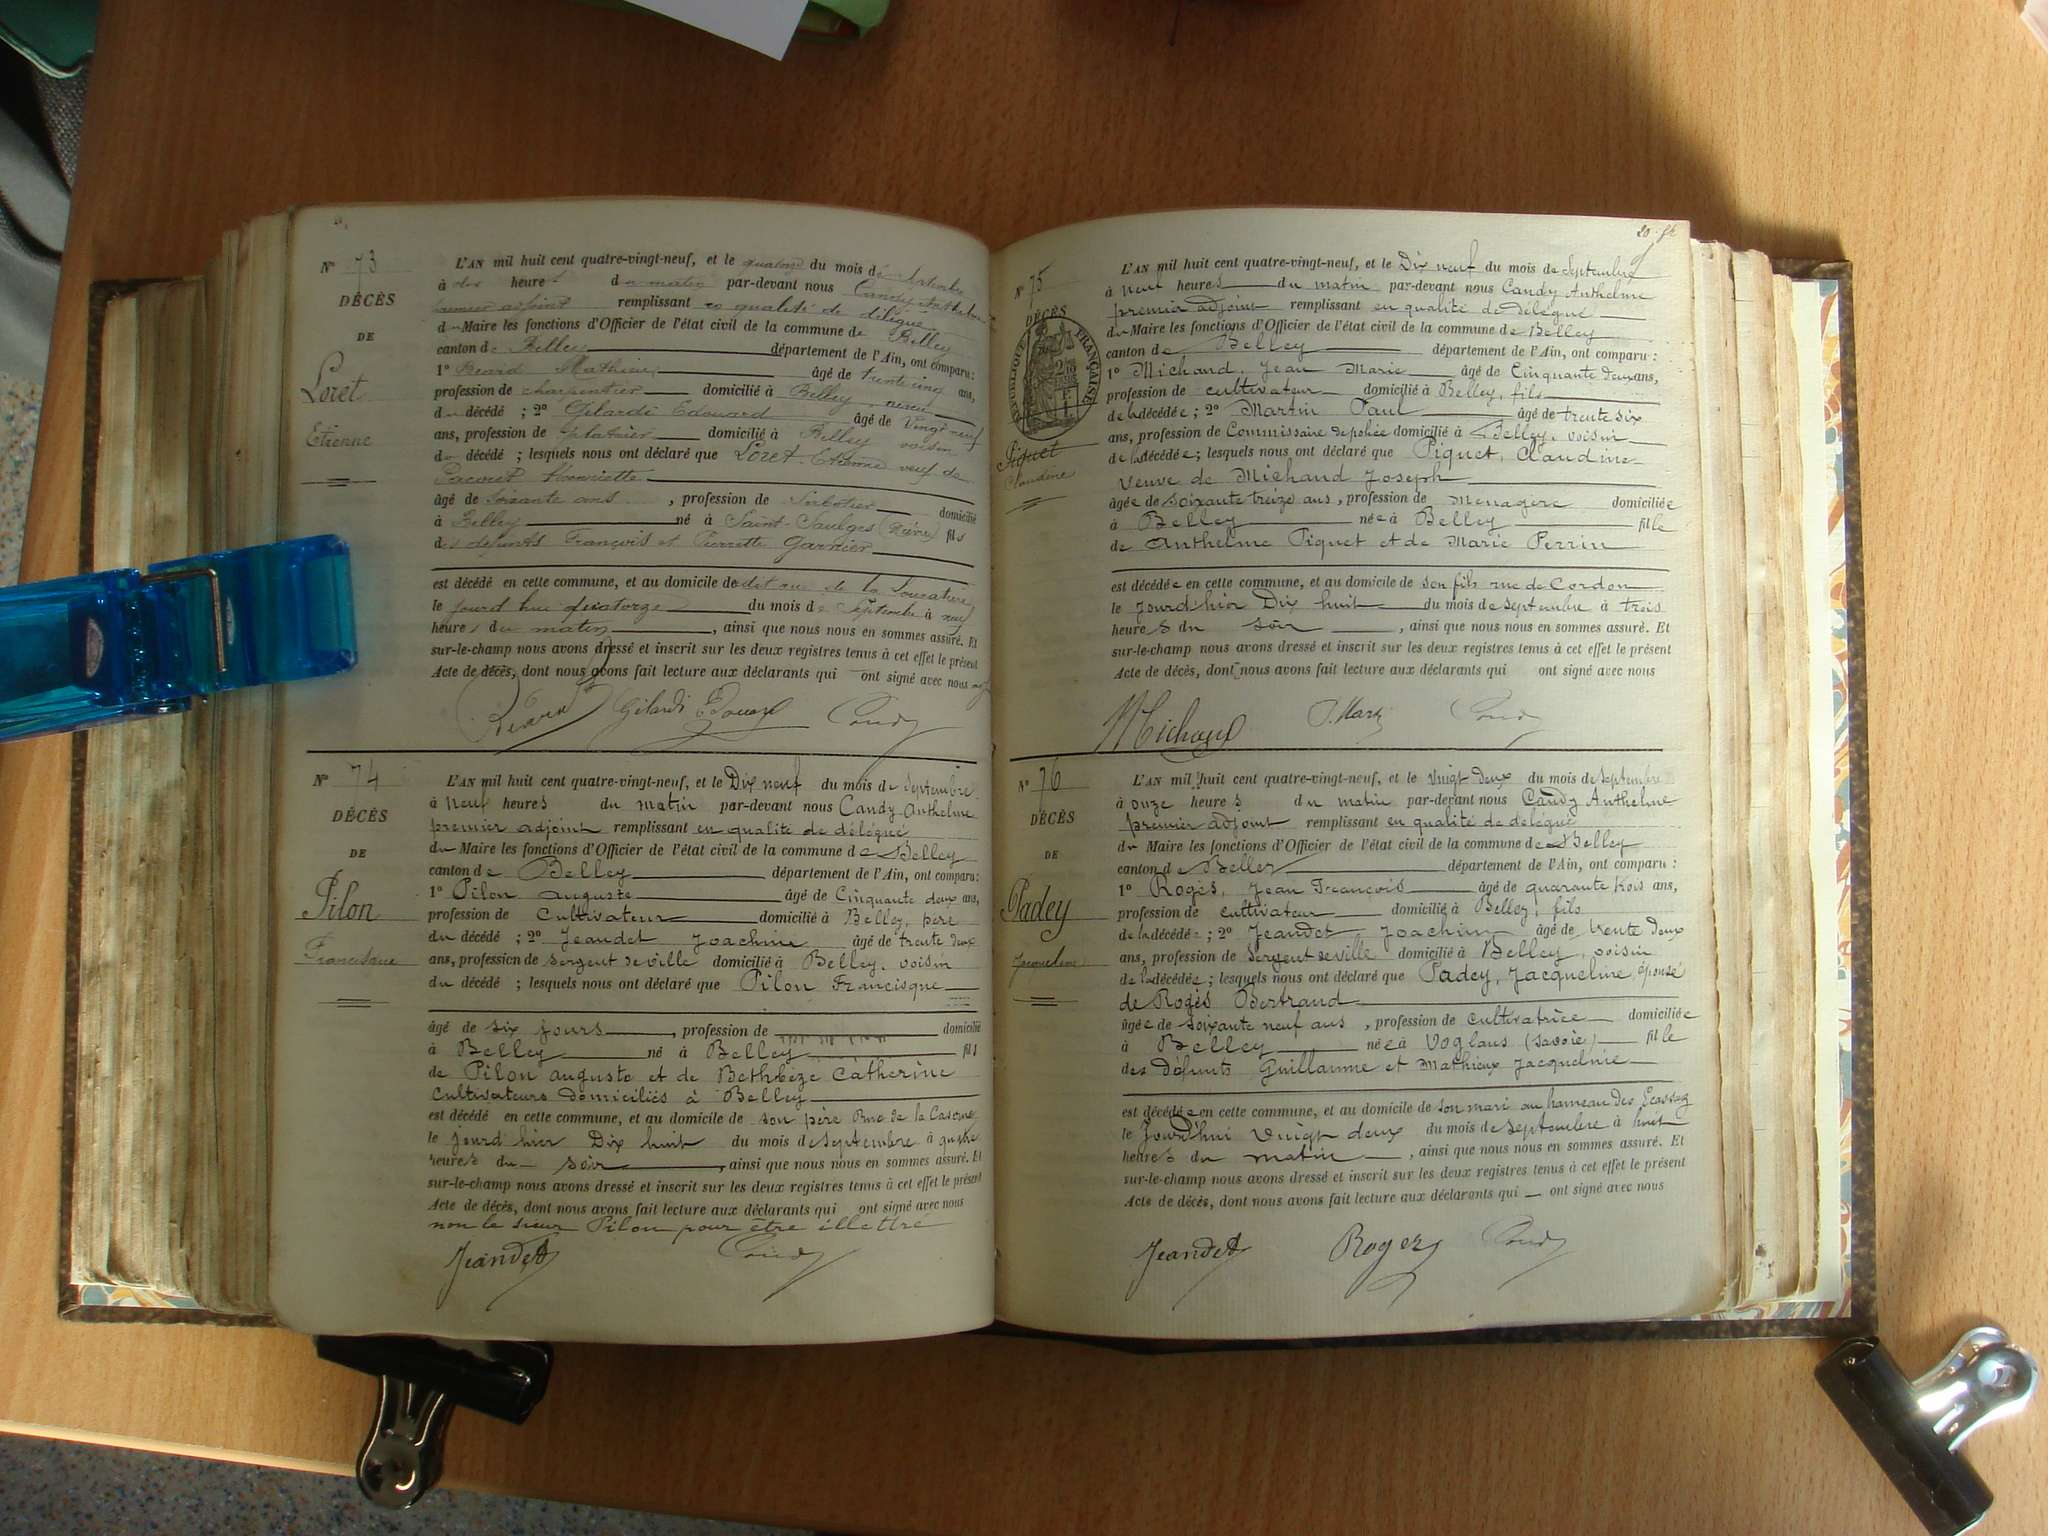 N° 73
DÉCÈS
DE
Loret
Etienne
L'AN mil huit cent quatre-vingt-neuf, et le quatorze du mois de Septembre
à heures du matin par-devant nous Candy Anthelme
premier adjoint remplissant en qualité de délégué
du Maire les fonctions d'Officier de l'état civil de la commune de Belley
canton de Belley département de l'Ain, ont comparu :
1° Béard Mathieu âgé de trente cinq ans,
profession de charpentier domicilié à Belley, neveu
du décédé ; 2° Gilardi Edouard âgé de Vingt neuf
ans, profession de plâtrier domicilié à Belley voisin
du décédé ; lesquels nous ont déclaré que Loret Etienne veuf de
Pacout Henriette
âgé de Soixante ans , profession de domicilié
à Belley né à Saint-Saulges (Nièvre) fils
des défunts François et Pierrette Garnier
est décédé en cette commune, et au domicile de dit rue de la
le jourd'hui quatorze du mois de Septembre à neuf
heures du matin , ainsi que nous nous en sommes assuré. Et
sur-le-champ nous avons dressé et inscrit sur les deux registres tenus à cet effet le présent
Acte de décès, dont nous avons fait lecture aux déclarants qui ont signé avec nous
Béard Gilardi Edouard Candy
N° 74
DÉCÈS
DE
Pilon
Francisque
L'AN mil huit cent quatre-vingt-neuf, et le Dix neuf du mois de Septembre
à neuf heures du matin par-devant nous Candy Anthelme
premier adjoint remplissant en qualité de délégué
du Maire les fonctions d'Officier de l'état civil de la commune de Belley
canton de Belley département de l'Ain, ont comparu :
1° Pilon auguste âgé de Cinquante deux ans,
profession de Cultivateur domicilié à Belley, père
du décédé ; 2° Jeandet Joachim âgé de trente deux
ans, profession de sergent de ville domicilié à Belley, voisin
du décédé ; lesquels nous ont déclaré que Pilon Francisque
âgé de six jours , profession de domicilié
à Belley né à Belley fils
de Pilon auguste et de Bethbèze Catherine
Cultivateurs domiciliés à Belley
est décédé en cette commune, et au domicile de son père Rue de la Caserne
le jourd'hier Dix huit du mois de Septembre à quatre
heures du soir , ainsi que nous nous en sommes assuré. Et
sur-le-champ nous avons dressé et inscrit sur les deux registres tenus à cet effet le présent
Acte de décès, dont nous avons fait lecture aux déclarants qui ont signé avec nous
non le sieur Pilon pour être illettré
Jeandet Candy
N° 75
DÉCÈS
RÉPUBLIQUE FRANÇAISE
Piquet
Claudine
L'AN mil huit cent quatre-vingt-neuf, et le Dix neuf du mois de Septembre
à neuf heures du matin par-devant nous Candy Anthelme
premier adjoint remplissant en qualité de délégué
du Maire les fonctions d'Officier de l'état civil de la commune de Belley
canton de Belley département de l'Ain, ont comparu :
1° Michaud, Jean Marie âgé de Cinquante deux ans,
profession de cultivateur domicilié à Belley, fils
de la décédée ; 2° Martin Paul âgé de trente six
ans, profession de Commissaire de police domicilié à Belley, voisin
de la décédée ; lesquels nous ont déclaré que Piquet, Claudine
veuve de Michaud Joseph
âgée de soixante treize ans , profession de Ménagère domiciliée
à Belley née à Belley fille
de Anthelme Piquet et de Marie Perrin
est décédée en cette commune, et au domicile de son fils rue de Cordon
le jourd'hier Dix huit du mois de septembre à trois
heures du soir , ainsi que nous nous en sommes assuré. Et
sur-le-champ nous avons dressé et inscrit sur les deux registres tenus à cet effet le présent
Acte de décès, dont nous avons fait lecture aux déclarants qui ont signé avec nous
Michaud P. Martin Candy
N° 76
DÉCÈS
DE
Padey
Jacqueline
L'AN mil huit cent quatre-vingt-neuf, et le vingt deux du mois de septembre
à onze heures du matin par-devant nous Candy Anthelme
premier adjoint remplissant en qualité de délégué
du Maire les fonctions d'Officier de l'état civil de la commune de Belley
canton de Belley département de l'Ain, ont comparu :
1° Rogés, Jean François âgé de quarante trois ans,
profession de cultivateur domicilié à Belley, fils
de la décédée ; 2° Jeandet Joachim âgé de trente deux
ans, profession de Sergent de ville domicilié à Belley, voisin
de la décédée ; lesquels nous ont déclaré que Padey, Jacqueline, épouse
de Rogés Bertrand
âgée de soixante neuf ans , profession de cultivatrice domiciliée
à Belley née à Voglans (Savoie) fille
des Défunts Guillaume et Mathieux Jacqueline
est décédée en cette commune, et au domicile de son mari au hameau des Ecassaz
le jourd'hui vingt deux du mois de septembre à huit
heures du matin , ainsi que nous nous en sommes assuré. Et
sur-le-champ nous avons dressé et inscrit sur les deux registres tenus à cet effet le présent
Acte de décès, dont nous avons fait lecture aux déclarants qui ont signé avec nous
Jeandet Roger Candy